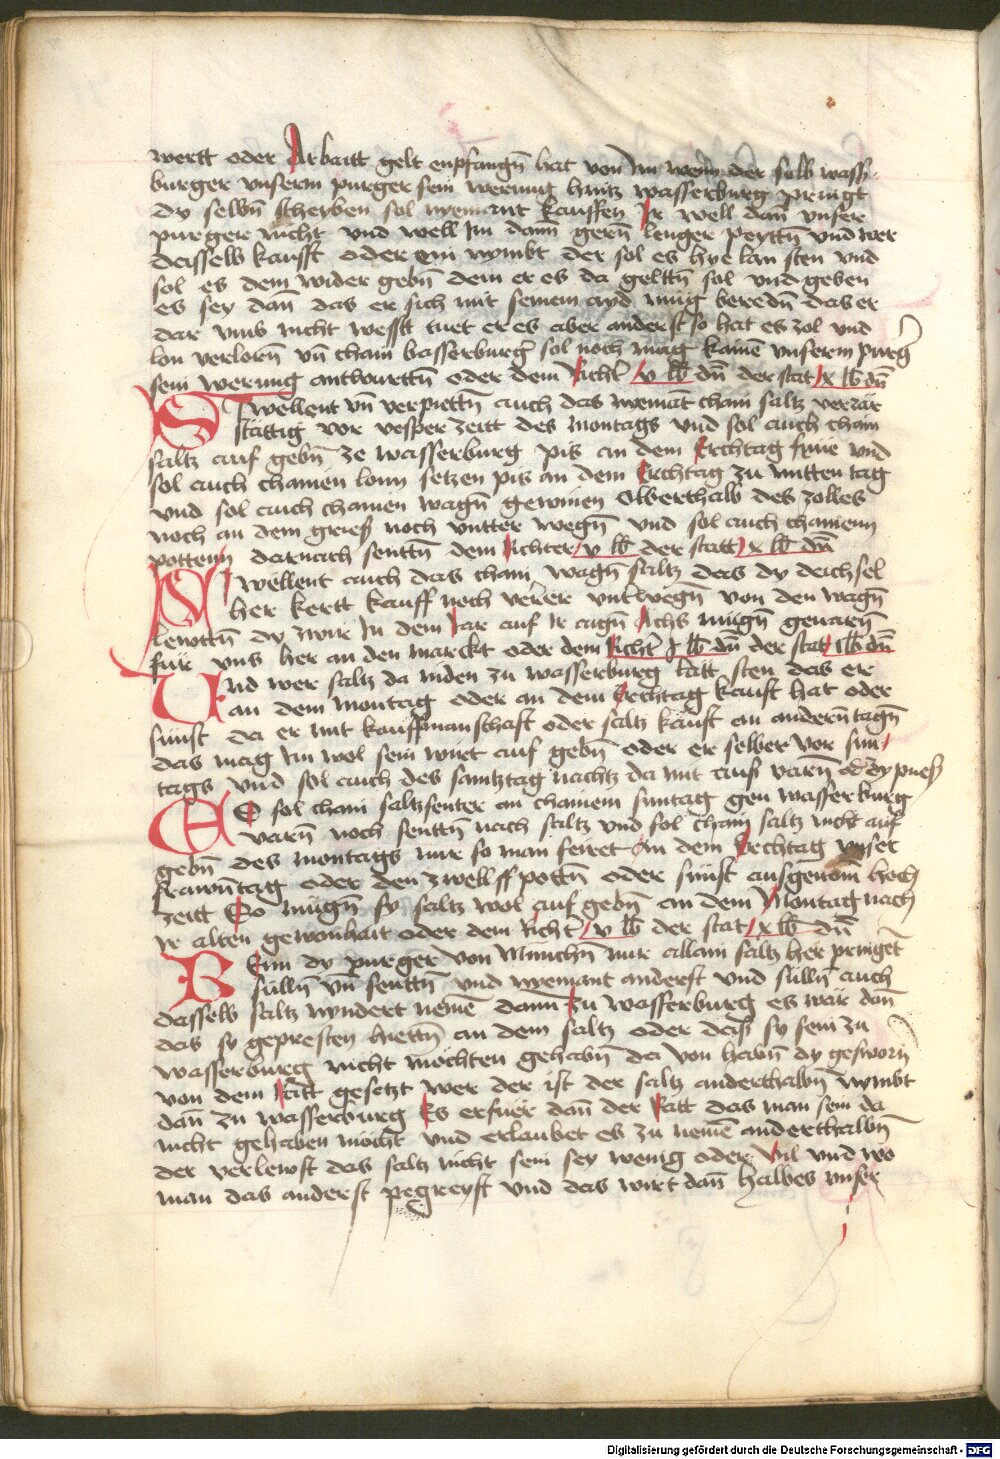 wertt oder Arbaitt gelt enpfangn̄ hat von Im wenn der selb wass
burger vnserm purger sein werung hintz wasserburg pringt
dy selbn̄ scheyben sol nyemant kauffen Ir well dan̄ vnser
purger nicht vnd well Im dann gern lenger peyttn̄ vnd wer
dasselb kaufft oder ein nymbt der sol es hye lan sten vnd
sol es dem wider gebn̄ dem er es da gelttn̄ sol vnd geben
es sey dan̄ das er sich mit seinem ayd mug beredn̄ das er
dar vmb nicht wesst tuet er es aber anderst so hat es zol vnd
lon verlorn̄ vn̄ chain basserburḡ sol noch mag kaine vnserm purḡ
sein werung antwurttn̄ oder dem Richt̄ v lb dn̄ der stat x lb dn̄
Si wellent vn̄ verpiettn̄ auch das niemat chain saltz verzär
stättig vor vesper zeitt des montags vnd sol auch chain
saltz auf gebn̄ ze wasserburg pis an dem Erchtag frue vnd
sol auch chainen lonn setzen pis an dem Erchtag zu mitten tag
vnd sol auch chainen wagn̄ gewinen Oberthalb des zolles
noch an dem gries noch vntter wegn̄ vnd sol auch chainenn
pottenn darnach senttn̄ dem Richter v lb der statt x lb dn̄
Wir wellent auch das chain wagn̄ saltz das dy deichsel
her kertt kauff noch verer vntwegn̄ von den wagn̄
lewttn̄ dy zwir In dem Jar auf Ir aign̄ Achs mügn̄ geuarn̄
für vnns her an den marckt oder dem Richt̄ j lb dn̄ der stat lb dn̄
Und wer saltz da niden zu wasserburg latt sten das er
an dem montag oder an dem Erchtag kauft hat oder
sunst da er mit kauffmanschaft oder saltz kauft an andern̄ tagn̄
das mag Im wol sein wirt auf gebn̄ oder er selber vor sun
tags vnd sol auch des samtztag nachtz da mit aus varn̄ od̄ dy pues
Es sol chain saltzsenter an chainem suntag gen wasserburg
varn̄ noch senttn̄ nach saltz vnd sol chain saltz nicht auf
gebn̄ des montags nur so man feiret An dem Erchtag vnser
frawn̄tag oder den zwellff pottn̄ oder sunst ausgenom̄ hoch
zeitt So mügn̄ sy saltz wol auf gebn̄ an dem Montag nach
Ir alten gewonhait oder dem Richt̄ v lb der stat x lb dn̄
Wenn dy purger von Münichn̄ nur allain saltz her pringet
sülln̄ vn̄ senttn̄ vnd nyemant anderst vnd sülln̄ auch
dasselb saltz nyndert nemē dann zu wasserburg es wär dan̄
das sy gepresten hiettn̄ an dem saltz oder das sy sein zu
wasserburg nicht möchten gehabn̄ da von habn̄ dy gesworn̄
von dem Ratt gesetzt wer der ist der saltz anderthalbn̄ nymbt
dan̄ zu wasserburg Es erfuer dan̄ der Ratt das man sein da
nicht gehaben mocht vnd erlaubet es zu nemē anderthalbn̄
der verlewst das saltz nicht sein sey wenig oder vil vnd wo
man das anderst pegreyft vnd das wirt dan̄ halbes vnser
Digitalisierung gefördert durch die Deutsche Forschungsgemeinschaft - DFG